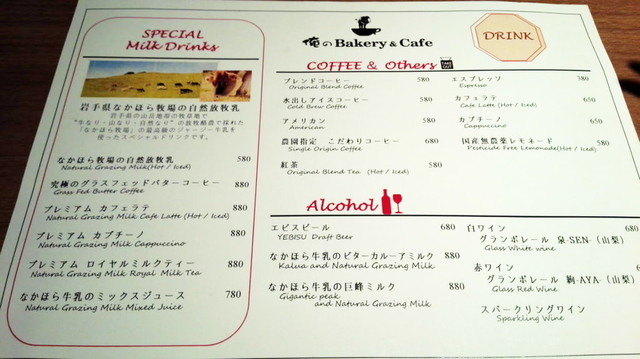 SPECIAL
Milk Drinks
岩手県なかほら牧場の自然放牧乳
岩手県の山岳地帯の牧草地で
"牛なり・山なり・自然なり"の放牧酪農で採れた
「なかほら牧場」の最高級のジャージー牛乳を
使ったスペシャルドリンクです。
なかほら牧場の自然放牧乳 580
Natural Grazing Milk(Hot / Iced)
究極のグラスフェッドバターコーヒー 880
Grass Fed Butter Coffee
プレミアム カフェラテ 880
Natural Grazing Milk Cafe Latte (Hot / Iced)
プレミアム カプチーノ 880
Natural Grazing Milk Cappuccino
プレミアム ロイヤルミルクティー 880
Natural Grazing Milk Royal Milk Tea
なかほら牛乳のミックスジュース 780
Natural Grazing Milk Mixed Juice
俺のBakery & Cafe
DRINK
COFFEE & Others
ブレンドコーヒー 580
Original Blend Coffee
水出しアイスコーヒー 580
Cold Brew Coffee
アメリカン 580
American
農園指定 こだわりコーヒー 580
Single Origin Coffee
紅茶 580
Original Blend Tea (Hot / Iced)
エスプレッソ 380
Espresso
カフェラテ 650
Cafe Latte (Hot / Iced)
カプチーノ 650
Cappuccino
国産無農薬レモネード
Pesticide Free Lemonade(Hot / Iced)
Alcohol
ヱビスビール 680
YEBISU Draft Beer
なかほら牛乳のビターカルーアミルク 880
Kalua and Natural Grazing Milk
なかほら牛乳の巨峰ミルク 880
Gigantic peak
and Natural Grazing Milk
白ワイン 680
グランポレール 泉-SEN-(山梨)
Glass White wine
赤ワイン
グランポレール 絢-AYA-(山梨)
Glass Red Wine
スパークリングワイン
Sparkling Wine